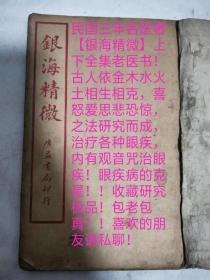 銀海精微
廣益書局印行
民国三本名医著
【银海精微】上
下全集老医书！
古人依金木水火
土相生相克，喜
怒爱思悲恐惊，
之法研究而成，
治疗各种眼疾，
内有观音咒治眼
疾！眼疾病的克
星！！收藏研究
极品！包老包
真！！喜欢的朋
友请私聊！